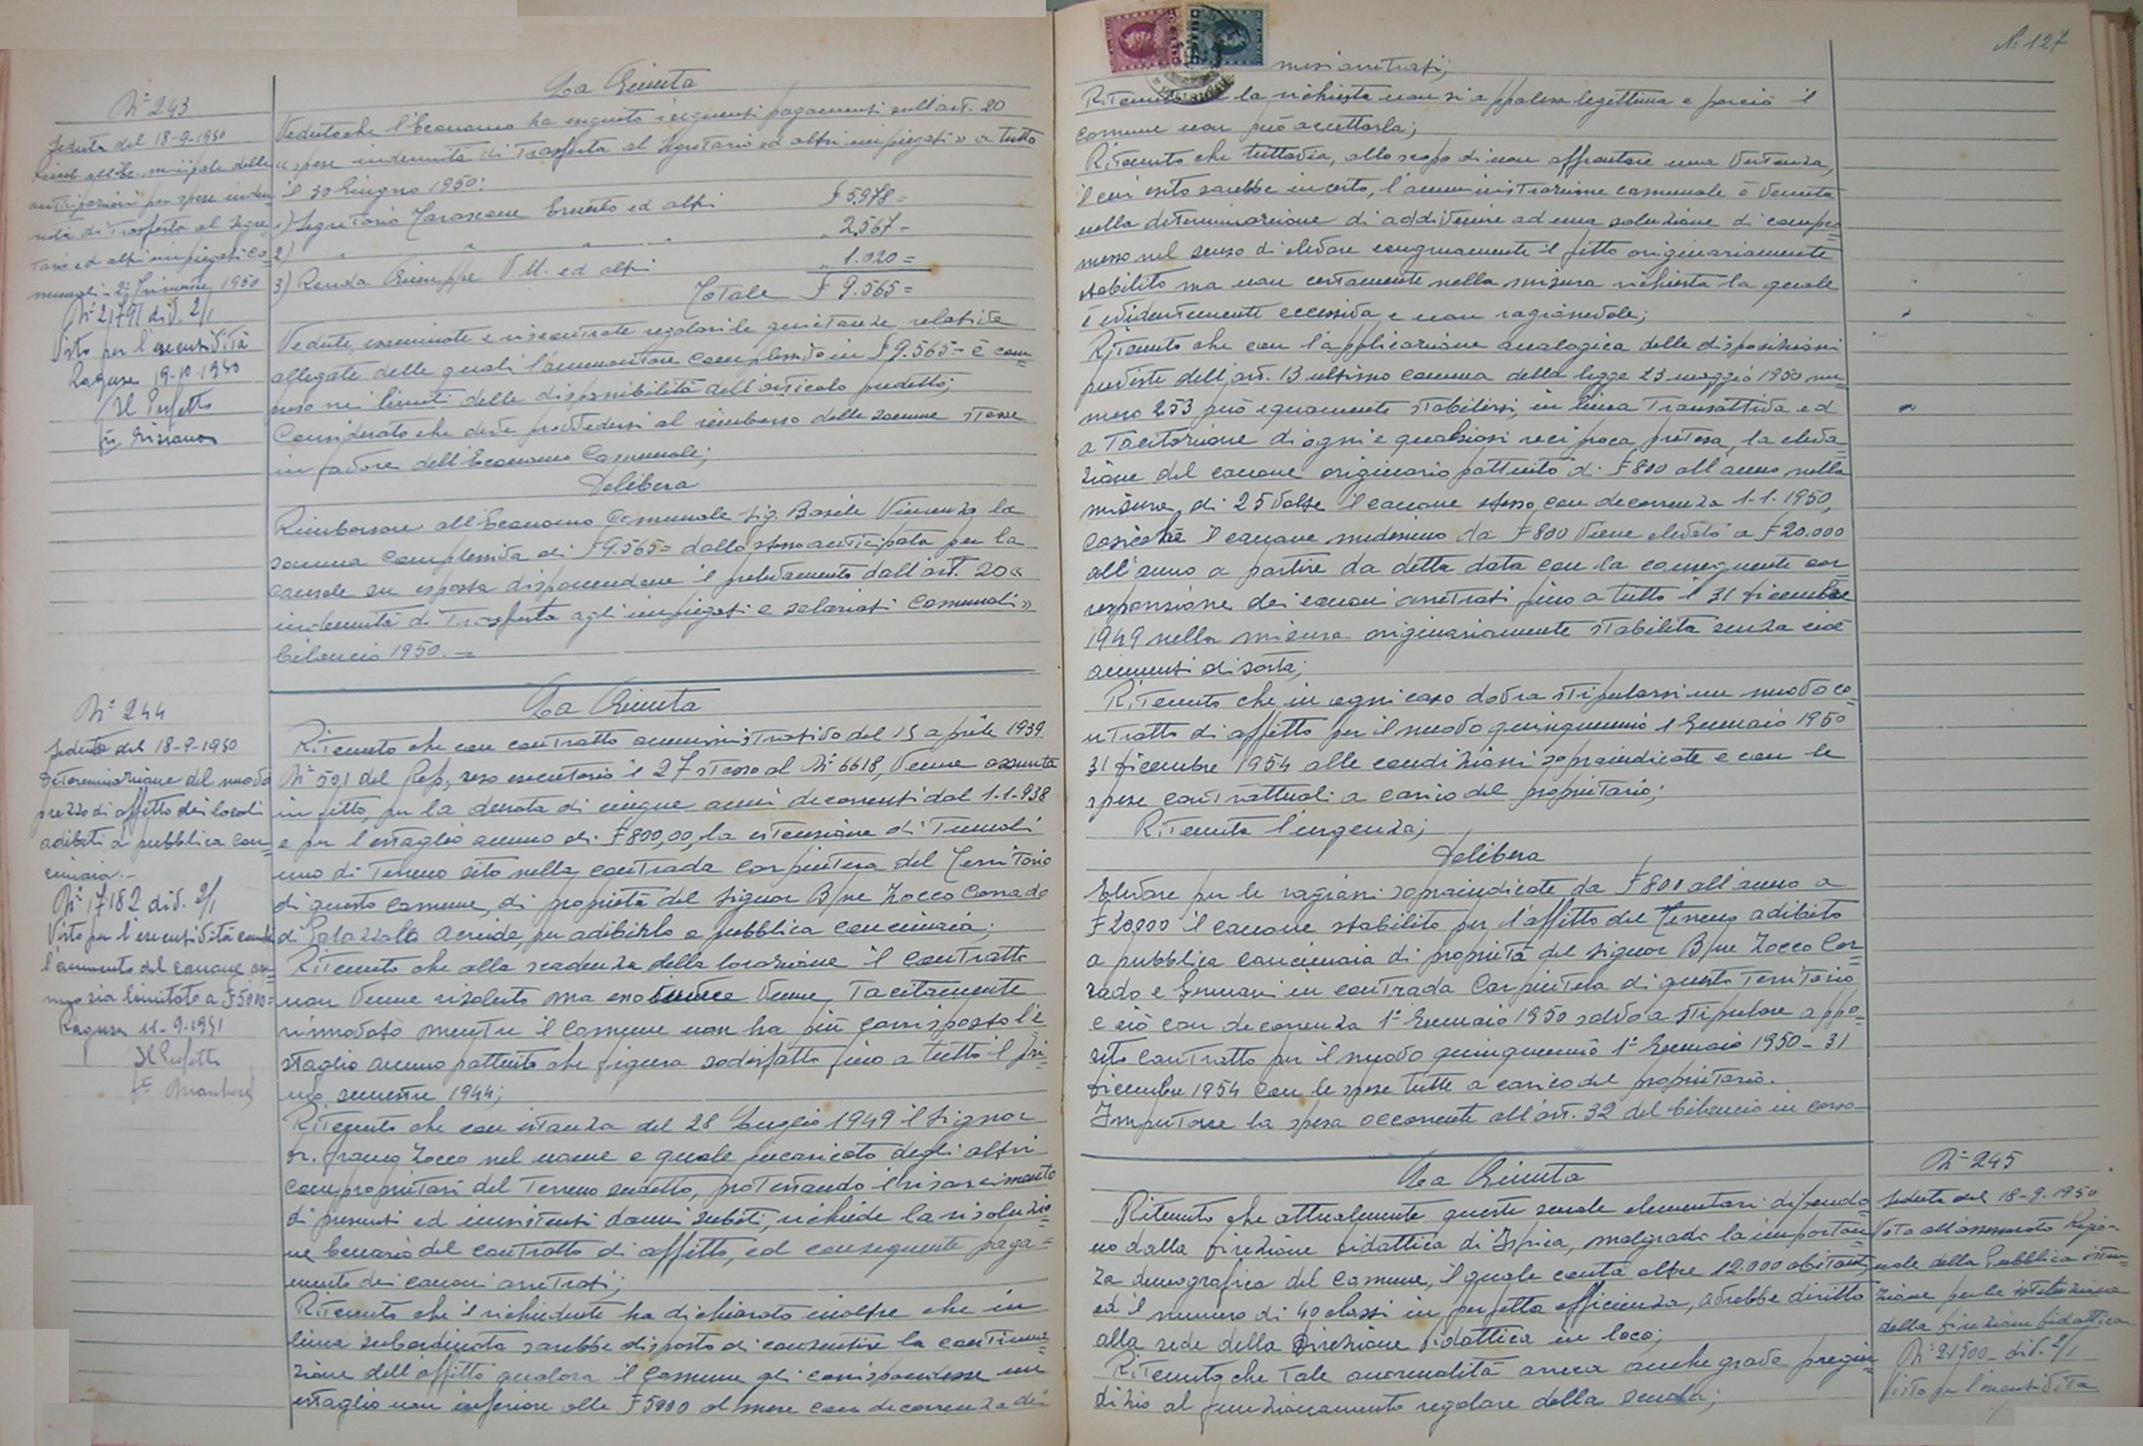 N° 243
Seduta del 18-9-1950
anticipazioni per spese inden
nità di Trasferta al Segre
tario ed altri impiegati co=
munali - 2° Trimestre 1950
N° 21791 div. 2/1
Visto per l'esecutività
Ragusa 19-10-1950
Il Prefetto
La Giunta
Veduto che l'Economo ha eseguito i seguenti pagamenti sull'art. 20
"spese indennità di Trasferta al Segretario ed altri impiegati" a tutto
il 30 Giugno 1950:
1) Segretario Tarascone Ernesto ed altri £ 5.978=
2) " " " " 2.567-
3) Renda Giuseppe V.U. ed altri " 1.020=
Totale £ 9.565=
Vedute, esaminate e riscontrate regolari le quietanze relative
allegate delle quali l'ammontare complessivo in £ 9.565= è com=
preso nei limiti delle disponibilità dell'articolo predetto;
Considerato che deve provvedersi al rimborso delle somme stesse
in favore dell'Economo Comunale;
Delibera
Rimborsare all'Economo Comunale Sig. Basile Vincenzo la
somma complessiva di £ 9.565= dallo stesso anticipata per la
causale su esposta disponendone il prelevamento dall'art. 20 "
indennità di Trasferta agli impiegati e salariati Comunali"
bilancio 1950.=
N° 244
Seduta del 18-9-1950
Determinazione del nuovo
prezzo di affitto dei locali
adibiti a pubblica con=
cimaia.-
N° 17182 div. 2/1
Visto per l'esecutività canché
l'aumento del canone an=
nuo sia limitato a £ 5000=
Ragusa 11-9-1951
Il Prefetto
La Giunta
Ritenuto che con contratto amministrativo del 15 aprile 1939
N° 591 del Rep, reso esecutorio il 27 stesso al N° 6618, venne assunta
in fitto, per la durata di cinque anni decorrenti dal 1-1-938
e per l'estaglio annuo di £ 800,00, la estensione di Tumoli
uno di terreno sito nella contrada Carpintera del Territorio
di questo Comune, di proprietà del Signor B/ne Zocco Corrado
di Palazzolo Acreide, per adibirlo a pubblica concimaia;
Ritenuto che alla scadenza della locazione il contratto
non venne risoluto ma venne tacitamente
rinnovato mentre il Comune non ha più corrisposto l'e=
staglio annuo pattuito che figura sodisfatto fino a tutto il pri=
mo semestre 1944;
Ritenuto che con istanza del 28 Luglio 1949 il Signor
Dr. Franco Zocco nel nome e quale incaricato degli altri
comproprietari del terreno sudetto, protestando il risarcimento
di presenti ed inesistenti danni subiti, richiede la risoluzio=
ne bonaria del contratto di affitto, ed conseguente paga=
mento dei canoni arretrati;
Ritenuto che il richiedente ha dichiarato inoltre che in
linea subordinata sarebbe disposto di consentire la continua=
zione dell'affitto qualora il Comune gli corrispondesse un
estaglio non inferiore alle £ 5000 al mese con decorrenza dei
N. 127
mesi arretrati;
Ritenuto la richiesta non si appalesa legittima e perciò il
comune non può accettarla;
Ritenuto che tuttavia, allo scopo di non affrontare una vertenza,
il cui esito sarebbe incerto, l'amministrazione comunale è venuta
nella determinazione di addivenire ad una soluzione di compro=
messo nel senso di elevare congruamente il fitto originariamente
stabilito ma non certamente nella misura richiesta la quale
è evidentemente eccessiva e non ragionevole;
Ritenuto che con l'applicazione analogica delle disposizioni
previste dell'art. 13 ultimo comma della legge 23 maggio 1950 nu=
mero 253 può equamente stabilirsi, in linea transattiva ed
a tacitazione di ogni e qualsiasi reciproca pretesa, la eleva=
zione del canone originario pattuito di £ 800 all'anno nella
misura di 25 volte il canone stesso, con decorrenza 1-1-1950,
cosicché il canone medesimo da £ 800 viene elevato a £ 20.000
all'anno a partire da detta data con la conseguente cor=
responsione dei canoni arretrati fino a tutto il 31 Dicembre
1949 nella misura originariamente stabilita senza cioè
aumenti di sorta;
Ritenuto che in ogni caso dovrà stipularsi un nuovo co=
ntratto di affitto per il nuovo quinquennio 1 Gennaio 1950
31 Dicembre 1954 alle condizioni sopraindicate e con le
spese contrattuali a carico del proprietario;
Ritenuta l'urgenza;
Delibera
Elevare per le ragioni sopraindicate da £ 800 all'anno a
£ 20000 il canone stabilito per l'affitto del Terreno adibito
a pubblica concimaia di proprietà del Signor B/ne Zocco Cor=
rado e Germani in contrada Carpintera di questo Territorio
e ciò con decorrenza 1° Gennaio 1950 salvo a stipulare appo=
sito contratto per il nuovo quinquennio 1° Gennaio 1950 - 31
Dicembre 1954 con le spese tutte a carico del proprietario.
Imputare la spesa occorrente all'art. 32 del bilancio in corso
La Giunta
Ritenuto che attualmente queste scuole elementari dipendo=
no dalla Direzione Didattica di Ispica, malgrado la importan=
za demografica del Comune, il quale conta oltre 12.000 abitanti,
ed il numero di 40 classi in perfetta efficienza, avrebbe diritto
alla sede della Direzione Didattica in loco;
Ritenuto che tale anormalità arreca anche grave pregiu=
dizio al funzionamento regolare della scuola;
N° 245
Seduta del 18-9-1950
Voto all'assessorato Regio=
nale della Pubblica istru=
zione per la istituzione
della Direzione Didattica
N° 21500 - div. 2/1
Visto per l'esecutività